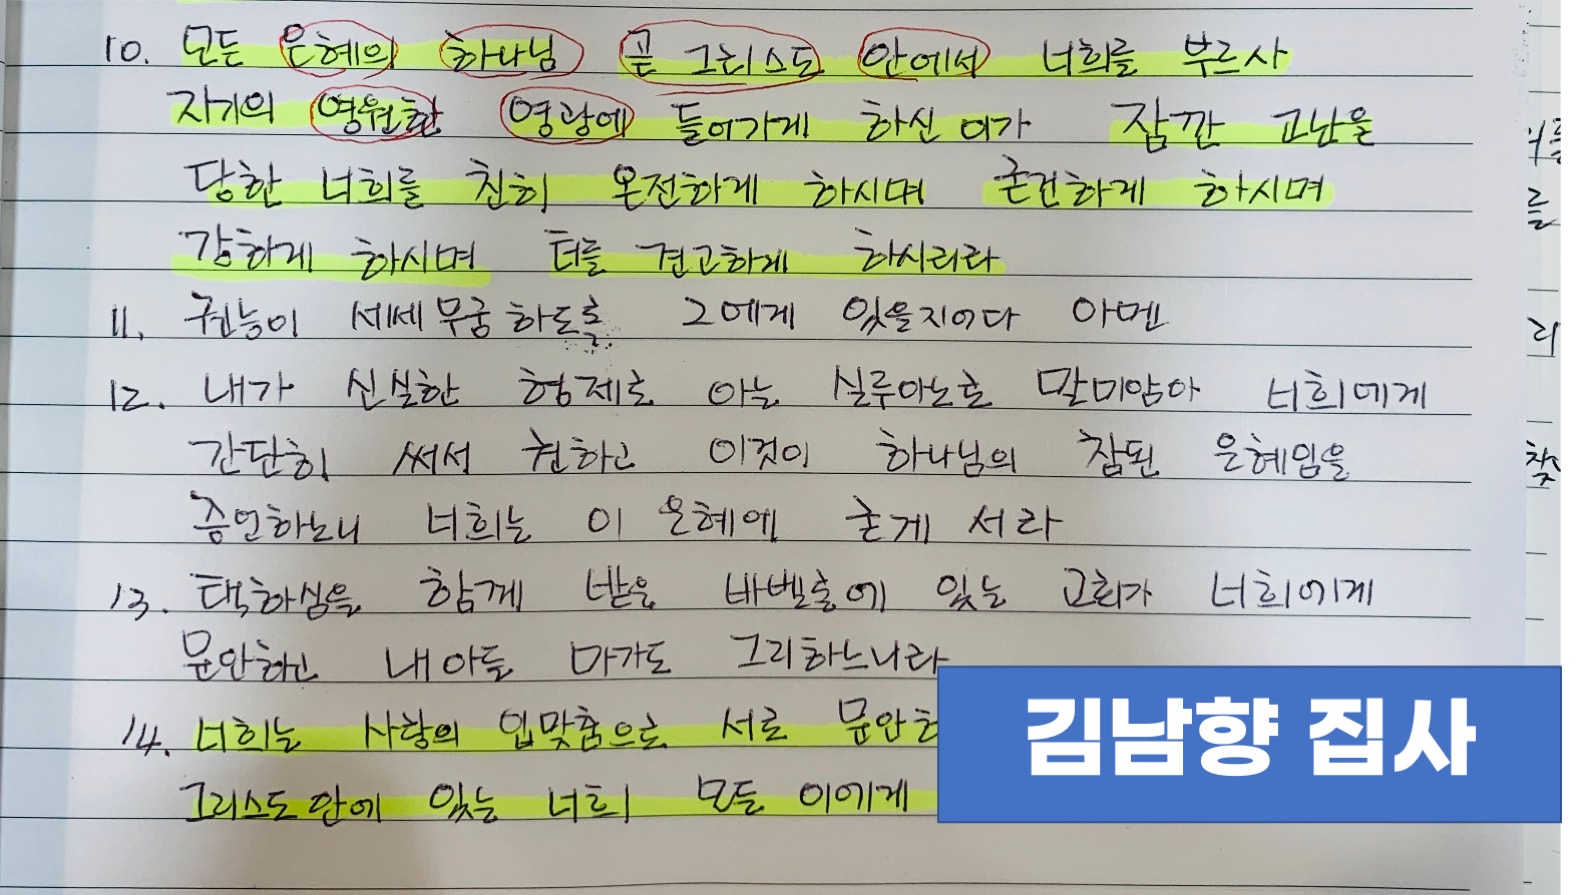 10. 모든 은혜의 하나님 곧 그리스도 안에서 너희를 부르사
자기의 영원한 영광에 들어가게 하신 이가 잠깐 고난을
당한 너희를 친히 온전하게 하시며 굳건하게 하시며
강하게 하시며 터를 견고하게 하시리라
11. 권능이 세세무궁하도록 그에게 있을지어다 아멘
12. 내가 신실한 형제로 아는 실루아노로 말미암아 너희에게
간단히 써서 권하고 이것이 하나님의 참된 은혜임을
증언하노니 너희는 이 은혜에 굳게 서라
13. 택하심을 함께 받은 바벨론에 있는 교회가 너희에게
문안하고 내 아들 마가도 그리하느니라
14. 너희는 사랑의 입맞춤으로 서로 문안하
그리스도 안에 있는 너희 모든 이에게
김남향 집사
를
리
찾